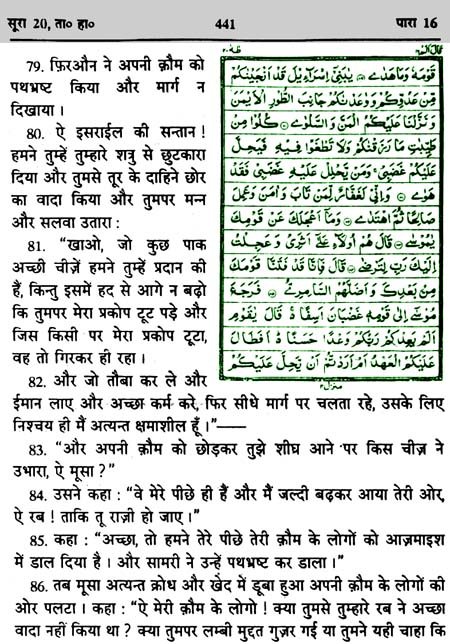 सूरा 20, ता० हा०
441
पारा 16
79. फ़िरऔन ने अपनी क़ौम को
पथभ्रष्ट किया और मार्ग न
दिखाया ।
80. ऐ इसराईल की सन्तान !
हमने तुम्हें तुम्हारे शत्रु से छुटकारा
दिया और तुमसे तूर के दाहिने छोर
का वादा किया और तुमपर मन्न
और सलवा उतारा :
81. “खाओ, जो कुछ पाक
अच्छी चीज़ें हमने तुम्हें प्रदान की
हैं, किन्तु इसमें हद से आगे न बढ़ो
कि तुमपर मेरा प्रकोप टूट पड़े और
जिस किसी पर मेरा प्रकोप टूटा,
वह तो गिरकर ही रहा ।
82. और जो तौबा कर ले और
ईमान लाए और अच्छा कर्म करे, फिर सीधे मार्ग पर चलता रहे, उसके लिए
निश्चय ही मैं अत्यन्त क्षमाशील हूँ ।”——
83. “और अपनी क़ौम को छोड़कर तुझे शीघ्र आने पर किस चीज़ ने
उभारा, ऐ मूसा ?”
84. उसने कहा : “वे मेरे पीछे ही हैं और मैं जल्दी बढ़कर आया तेरी ओर,
ऐ रब ! ताकि तू राज़ी हो जाए ।”
85. कहा : “अच्छा, तो हमने तेरे पीछे तेरी क़ौम के लोगों को आज़माइश
में डाल दिया है । और सामरी ने उन्हें पथभ्रष्ट कर डाला ।”
86. तब मूसा अत्यन्त क्रोध और खेद में डूबा हुआ अपनी क़ौम के लोगों की
ओर पलटा । कहा : “ऐ मेरी क़ौम के लोगो ! क्या तुमसे तुम्हारे रब ने अच्छा
वादा नहीं किया था ? क्या तुमपर लम्बी मुद्दत गुज़र गई या तुमने यही चाहा कि
قَوْمَهٗ وَمَا هَدٰى ۝ يٰبَنِيْٓ اِسْرَآءِيْلَ قَدْ اَنْجَيْنٰكُمْ
مِّنْ عَدُوِّكُمْ وَوٰعَدْنٰكُمْ جَانِبَ الطُّوْرِ الْاَيْمَنَ
وَنَزَّلْنَا عَلَيْكُمُ الْمَنَّ وَالسَّلْوٰى ۝ كُلُوْا مِنْ
طَيِّبٰتِ مَا رَزَقْنٰكُمْ وَلَا تَطْغَوْا فِيْهِ فَيَحِلَّ
عَلَيْكُمْ غَضَبِيْ ۚ وَمَنْ يَّحْلِلْ عَلَيْهِ غَضَبِيْ فَقَدْ
هَوٰى ۝ وَاِنِّيْ لَغَفَّارٌ لِّمَنْ تَابَ وَاٰمَنَ وَعَمِلَ
صَالِحًا ثُمَّ اهْتَدٰى ۝ وَمَآ اَعْجَلَكَ عَنْ قَوْمِكَ
يٰمُوْسٰى ۝ قَالَ هُمْ اُولَآءِ عَلٰٓى اَثَرِيْ وَعَجِلْتُ
اِلَيْكَ رَبِّ لِتَرْضٰى ۝ قَالَ فَاِنَّا قَدْ فَتَنَّا قَوْمَكَ
مِنْۢ بَعْدِكَ وَاَضَلَّهُمُ السَّامِرِيُّ ۝ فَرَجَعَ
مُوْسٰٓى اِلٰى قَوْمِهٖ غَضْبَانَ اَسِفًا ۚ قَالَ يٰقَوْمِ
اَلَمْ يَعِدْكُمْ رَبُّكُمْ وَعْدًا حَسَنًا ۚ اَفَطَالَ
عَلَيْكُمُ الْعَهْدُ اَمْ اَرَدْتُّمْ اَنْ يَّحِلَّ عَلَيْكُمْ